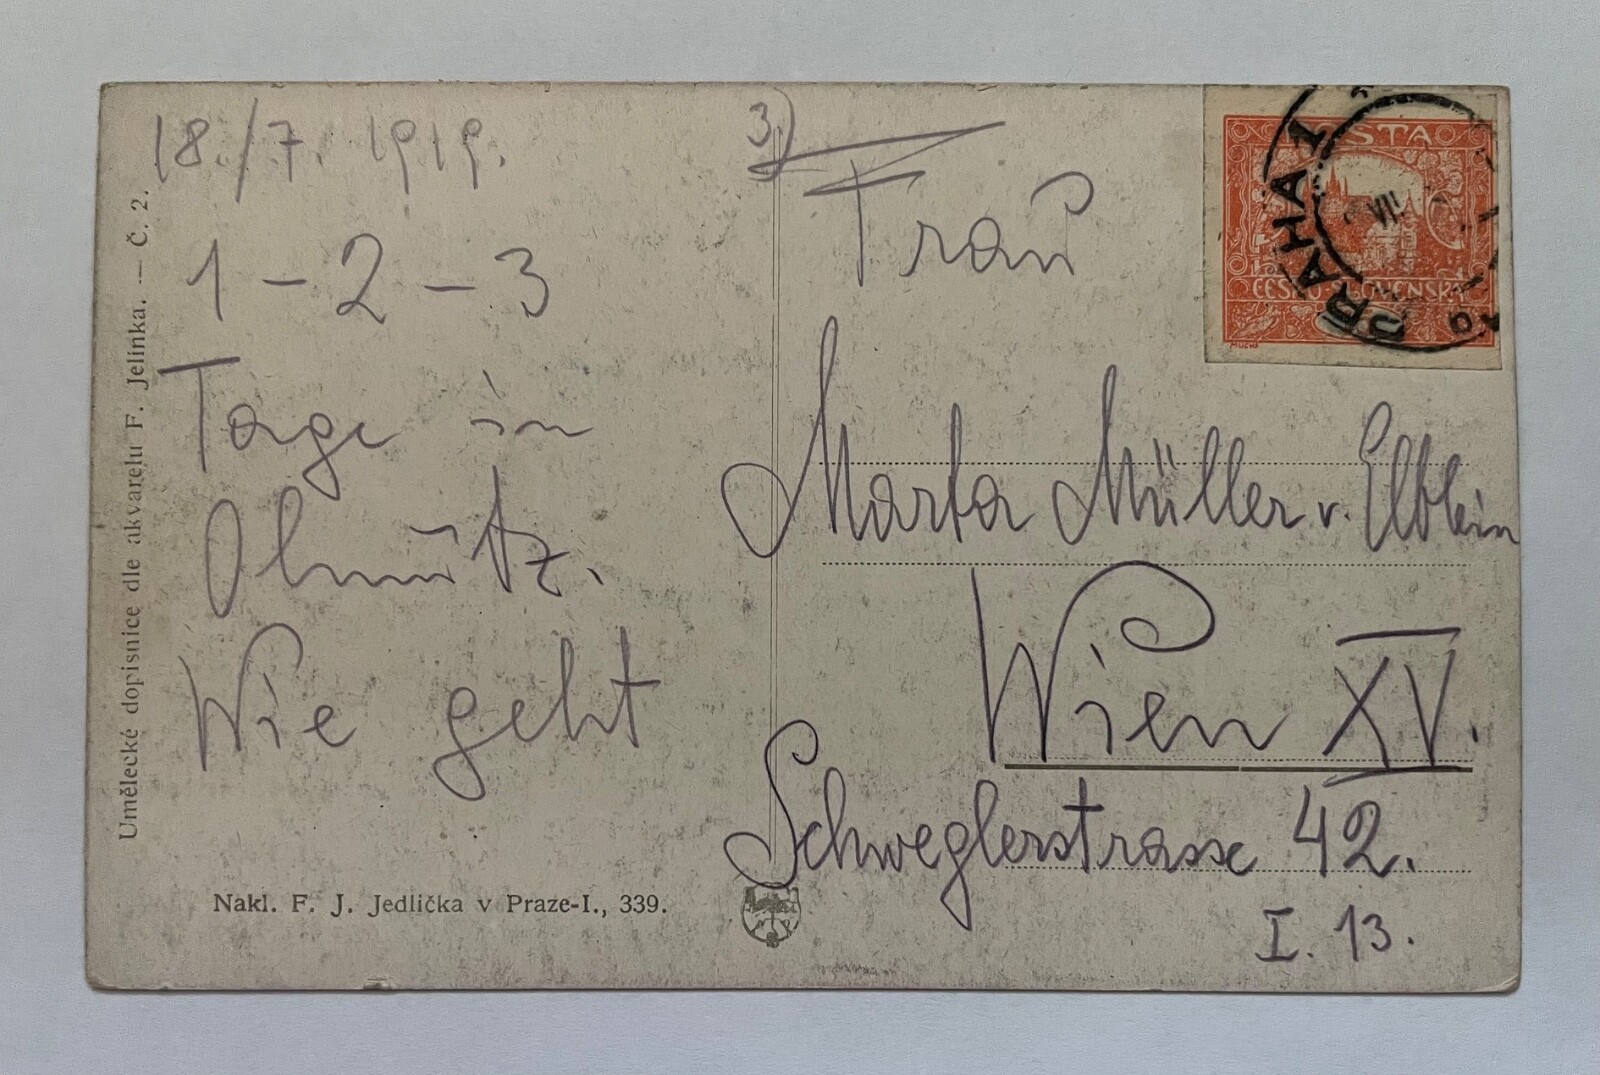 18./7. 1919.
1 - 2 - 3
Tage in
Olmütz.
Wie geht
3)
Frau
Marta Müller v. Elblein
Wien XV.
Schweglerstrasse 42.
I. 13.
Umělecké dopisnice dle akvarelu F. Jelínka. — Č. 2.
Nakl. F. J. Jedlička v Praze-I., 339.
POŠTA
ČESKO-SLOVENSKÁ
MUCHA
PRAHA 1
VII
19